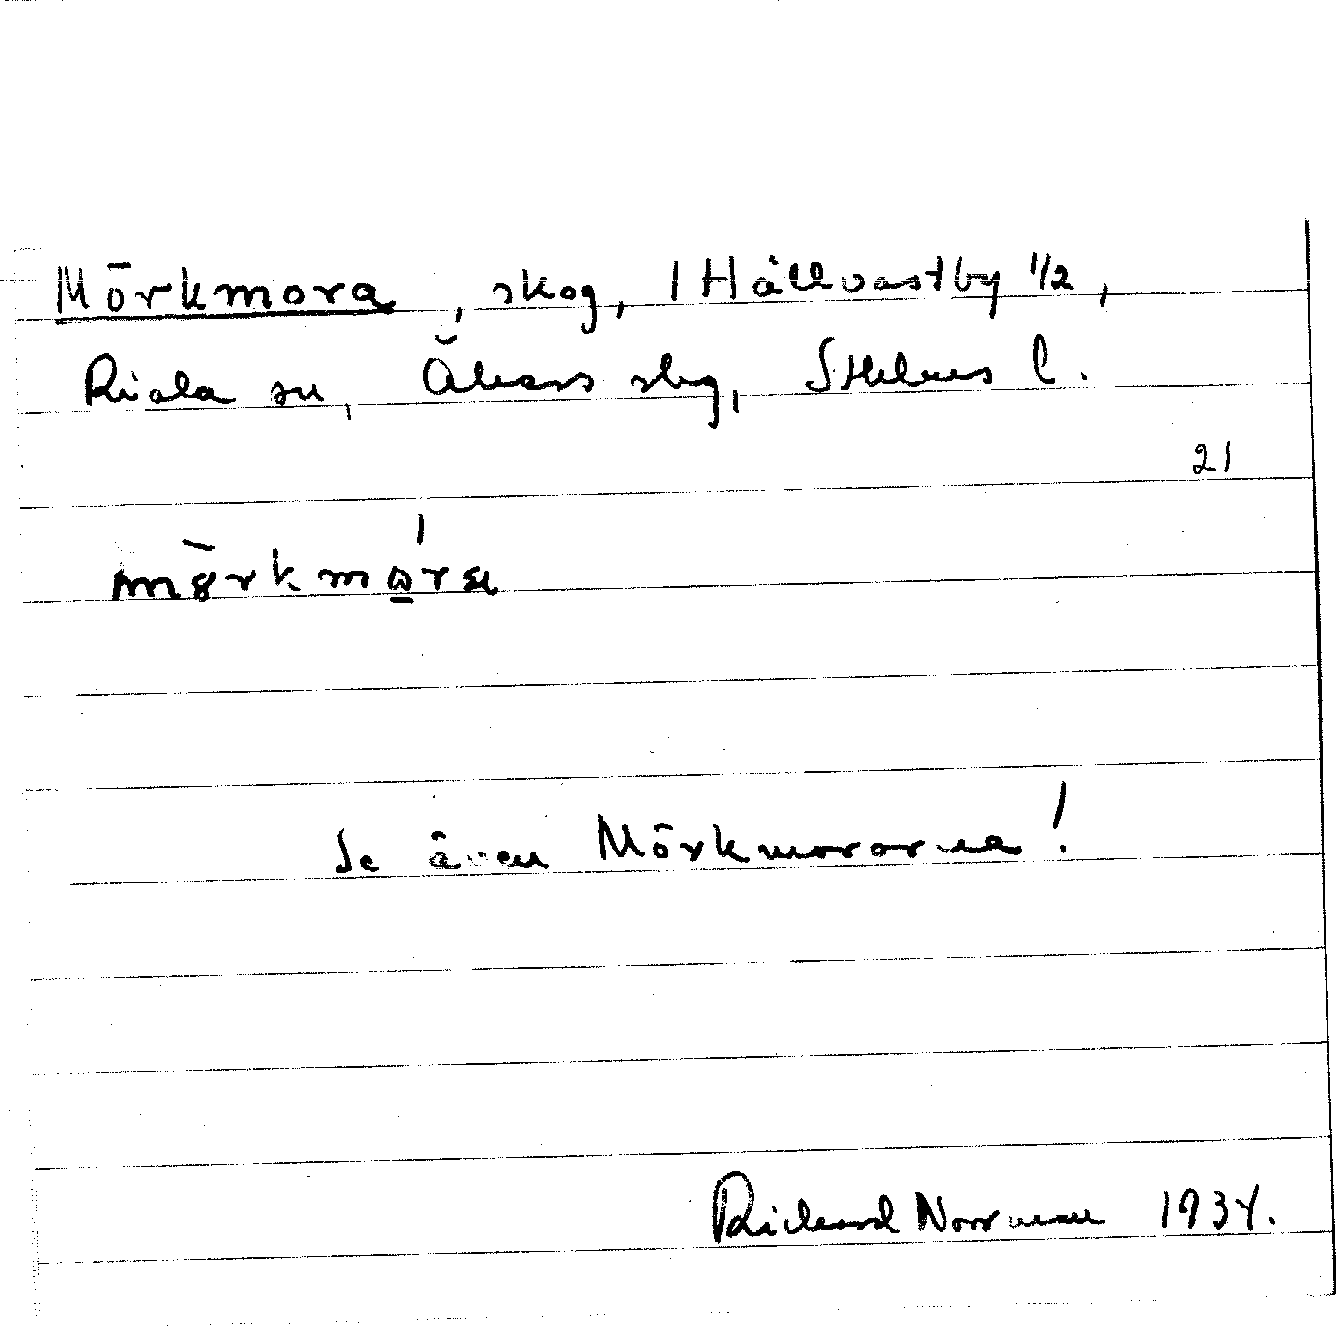 Mörkmora, skog, 1 Hållvastby 1/2,
Riala sn, Åkers skg, Sthlms l.
21
Se även Mörkmororna!
Richard Norrman 1934.